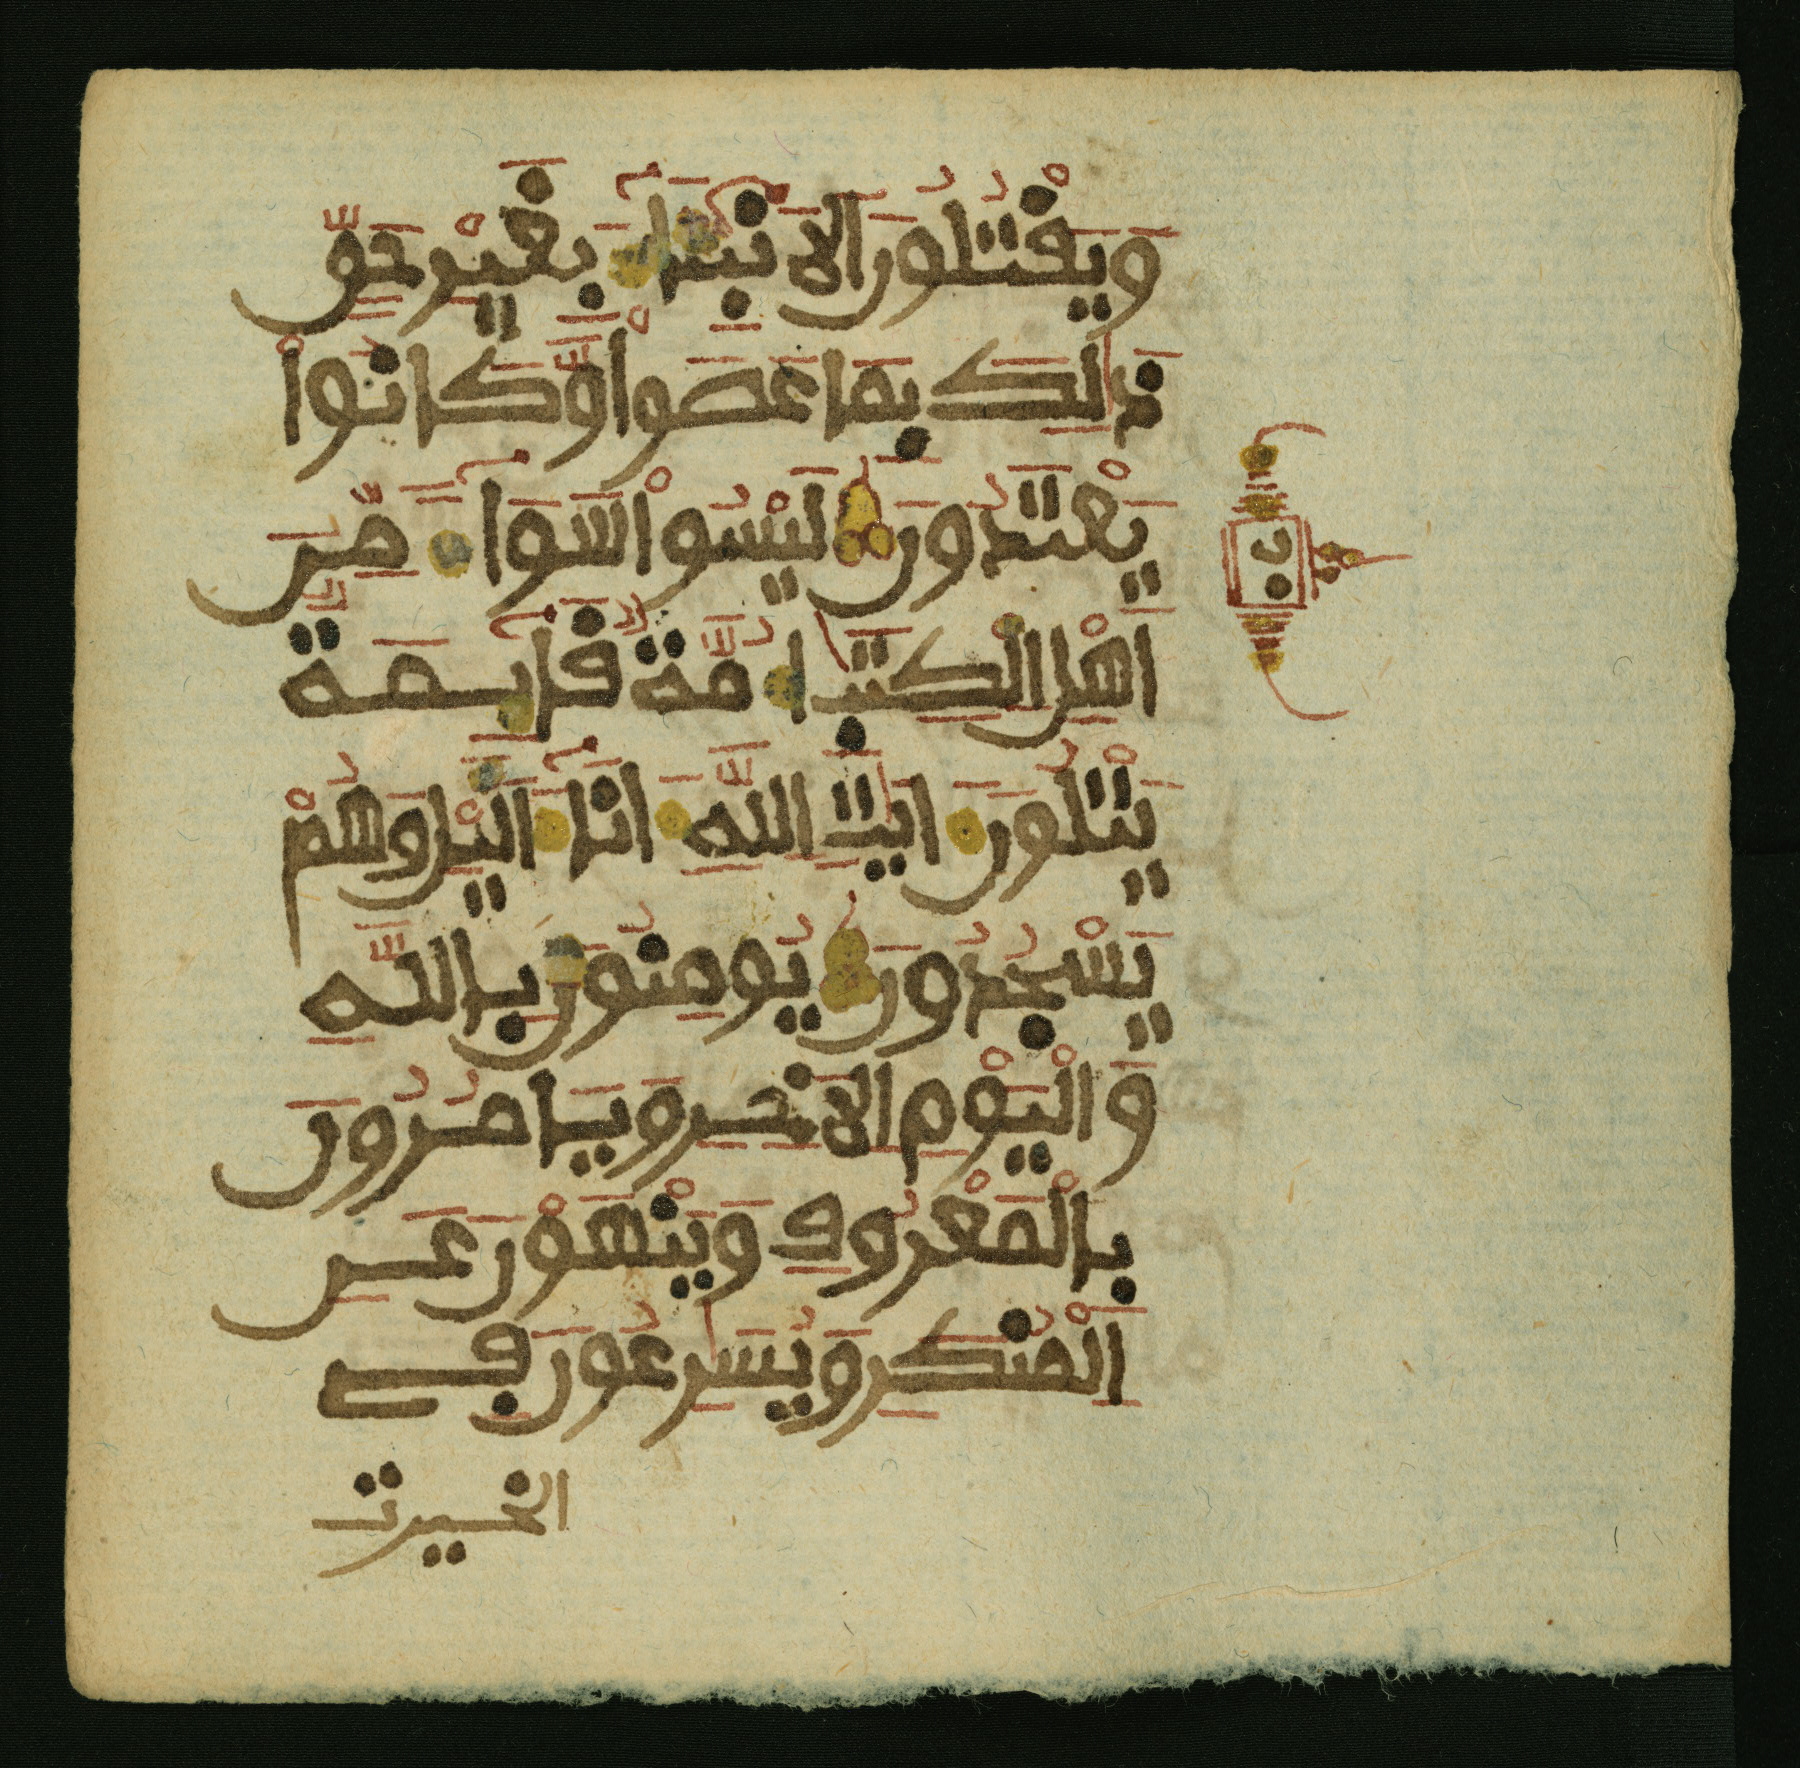 وَيَقْتُلُونَ الَانۢبِئَآءَ بِغَيْرِ حَقٍّ
ذَٰلِكَ بِمَا عَصَواْ وَّكَانُواْ
يَعْتَدُونَ لَيْسُواْ سَوَآءً مِّنَ
اَهْلِ الْكِتَٰبِ أُمَّةٌ قَآئِمَةٌ
يَتْلُونَ ءَايَٰتِ اللَّهِ ءَانَآءَ الَيْلِ وَهُمْ
يَسْجُدُونَ يُومِنُونَ بِاللَّهِ
وَالْيَوْمِ الَاخِرِ وَيَامُرُونَ
بِالْمَعْرُوفِ وَيَنْهَوْنَ عَنِ
الْمُنكَرِ وَيُسَٰرِعُونَ فِے
الخيرت
ب